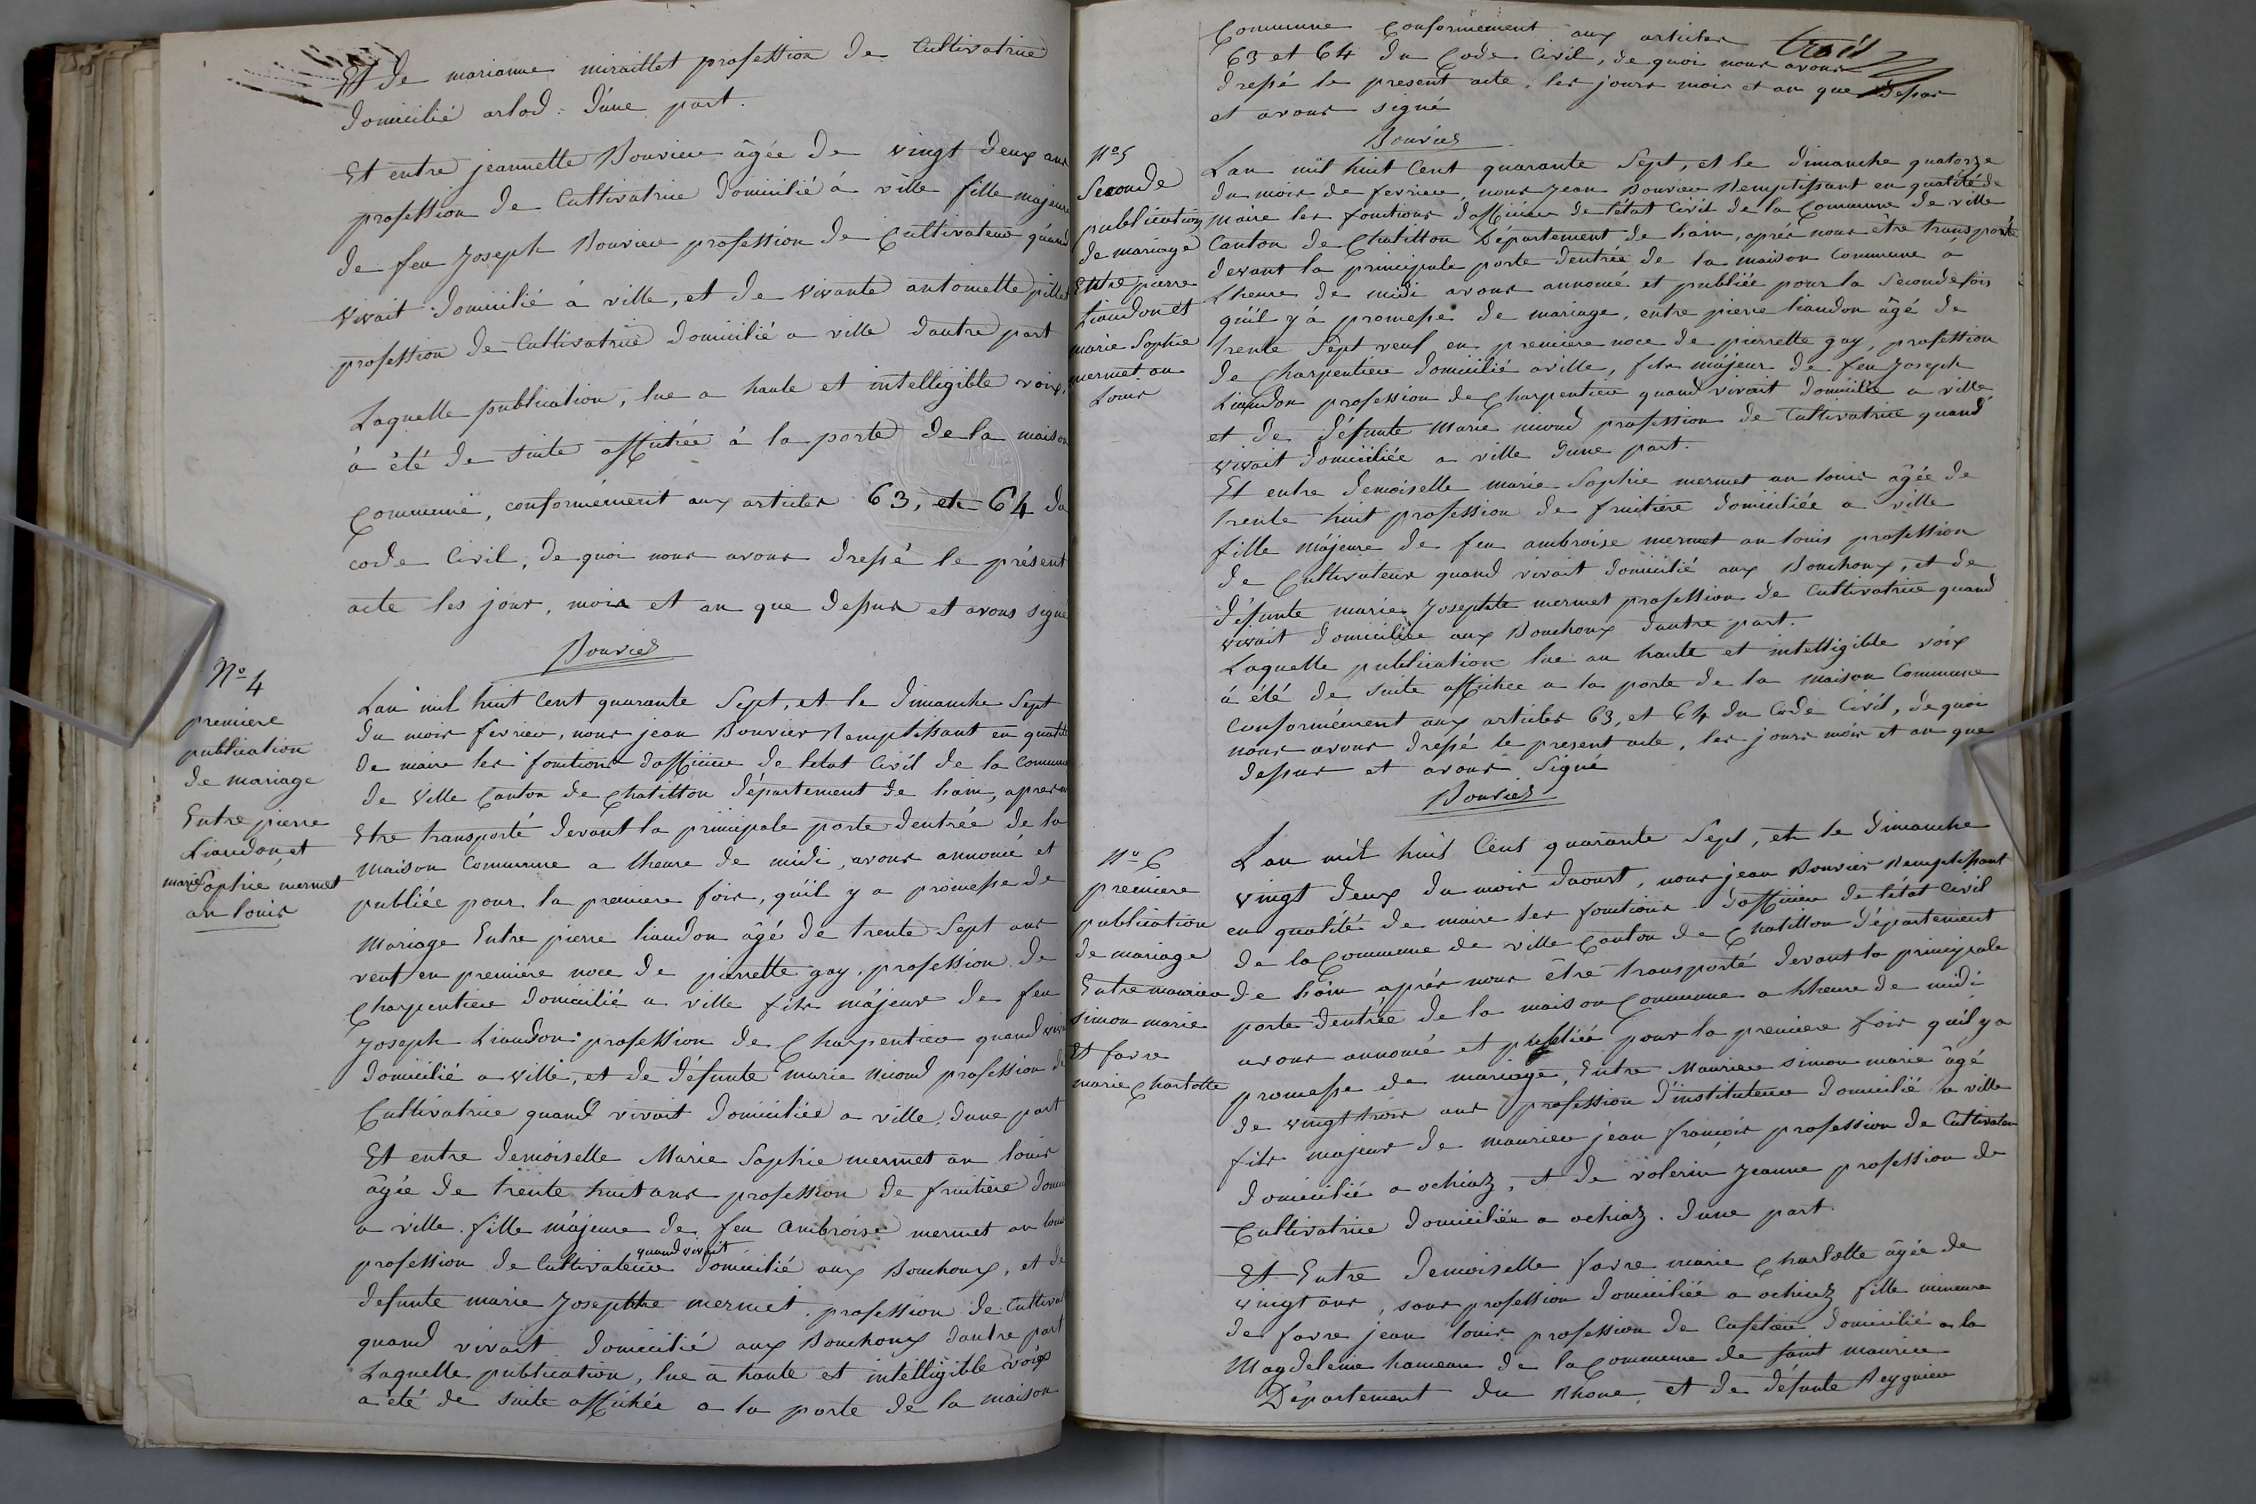 Et de marianne miraillet profession de Cultivatrice
domicilié arlod. d'une part.
Et entre jeannette Bouvier âgée de vingt deux ans
profession de Cultivatrice domicilié à ville fille majeure
de feu Joseph Bouvier profession de Cultivateur quand
vivait domicilié à ville, et de vivante antoinette pillet
profession de Cultivatrice domicilié a ville dautre part
Laquelle publication, lue a haute et intelligible voix,
à été de suite affichée à la porte de la maison
Commune, conformément aux articles 63, et 64 du
code Civil, de quoi nous avons dressé le présent
acte les jour, mois et an que dessus et avons signé
Bouvier
N° 4
premiere
publication
de mariage
Entre pierre
Liaudon, et
marie Sophie mermet
au louis
Lan mil huit Cent quarante Sept, et le dimanche Sept
du mois fevrier, nous jean Bouvier Remplissant en qualité
de maire les fonctions dofficier de letat Civil de la Commune
de Ville Canton de Chatillon département de lain, apres
Etre transporté devant la principale porte dentrée de la
maison Commune a lheure de midi, avons annoncé et
publiée pour la premiere fois, qu'il y a promesse de
mariage Entre pierre liaudon âgé de trente Sept ans
veuf en premiere noce de pierrette gay, profession de
Charpentier domicilié a ville fils májeur de feu
Joseph Liaudon profession de Charpentier quand vivait
domicilié a ville, et de défunte marie nicoud profession de
Cultivatrice quand vivait domiciliée a ville, dune part
Et entre demoiselle Marie Sophie mermet au louis
âgée de trente huit ans profession de fruitière
a ville. fille májeure de feu ambroise mermet au louis
profession de Cultivateur quand vivait domicilié aux Bouchoux, et de
defunte marie Josephte mermet profession de
quand vivait domicilié aux Bouchoux dautre part
Laquelle publication, lue à haute et intelligible voix
a été de suite affichée a la porte de la maison
trois
Commune Conformément aux articles
63 et 64 du Code Civil, de quoi nous avons
dressé le present acte, les jours mois et an que dessus
et avons signé
Bouvier
N° 5
Seconde
publication
de mariage
Entre pierre
Liaudon et
marie Sophie
mermet au
Louis
Lan mil huit Cent quarante Sept, et le dimanche quatorze
du mois de fevrier, nous Jean Bouvier Remplissant en qualité de
maire les fonctions dofficier de létat Civil de la Commune de ville
Canton de Chatillon Département de lain, après nous être transporté
devant la principale porte dentrée de la maison Commune à
Lheure de midi avons annoncé et publiée pour la Seconde fois
qu'il y á promesse de mariage, entre pierre liaudon âgé de
trente Sept veuf en premiere noce de pierrette gay, profession
de Charpentier domicilié a ville, fils májeur de feu Joseph
Liaudon profession de Charpentier quand vivait domicilié a ville
et de défunte Marie nicoud profession de Cultivatrice quand
vivait domiciliée a ville d'une part.
Et entre demoiselle marie Sophie mermet au louis âgée de
trente huit profession de fruitière domiciliée a ville
fille májeure de feu ambroise mermet au louis profession
de Cultivateur quand vivait domicilié aux Bouchoux, et de
défunte marie Josephte mermet profession de Cultivatrice quand
vivait domiciliée aux Bouchoux dautre part.
Laquelle publication lue au haute et intelligible voix
á été de suite affichee a la porte de la maison Commune
conformément aux articles 63, et 64 du Code Civil, de quoi
nous avons dressé le present acte, les jours mois et an que
dessus et avons Signé
Bouvier
N° 6
premiere
publication
de mariage
Entre maurier
simon marie
Et favre
marie Charlotte
Lan mil huit Cent quarante Sept, et le dimanche
vingt deux du mois daoust, nous jean Bouvier Remplissant
en qualité de maire les fonctions dofficier de létat Civil
de la Commune de ville Canton de Chatillon département
de lain après nous être transporté devant la principale
porte dentrée de la maison Commune a lheure de midi
avons annoncé et publiée pour la premiere fois qu'il y a
promesse de mariage, Entre Maurier simon marie âgé
de vingt trois ans profession d'instituteur domicilié a ville
fils majeur de maurier jean françois profession de Cultivateur
domicilié a ochiaz, et de volerin Jeanne profession de
Cultivatrice domiciliée a ochiaz. dune part.
Et Entre demoiselle favre marie Charlotte âgée de
vingt ans, sans profession domiciliée a ochiaz fille mineure
de favre jean louis profession de Cafetier domicilié a la
Magdeleine hameau de la Commune de saint maurice
Département du Rhone, et de défunte Reygnier